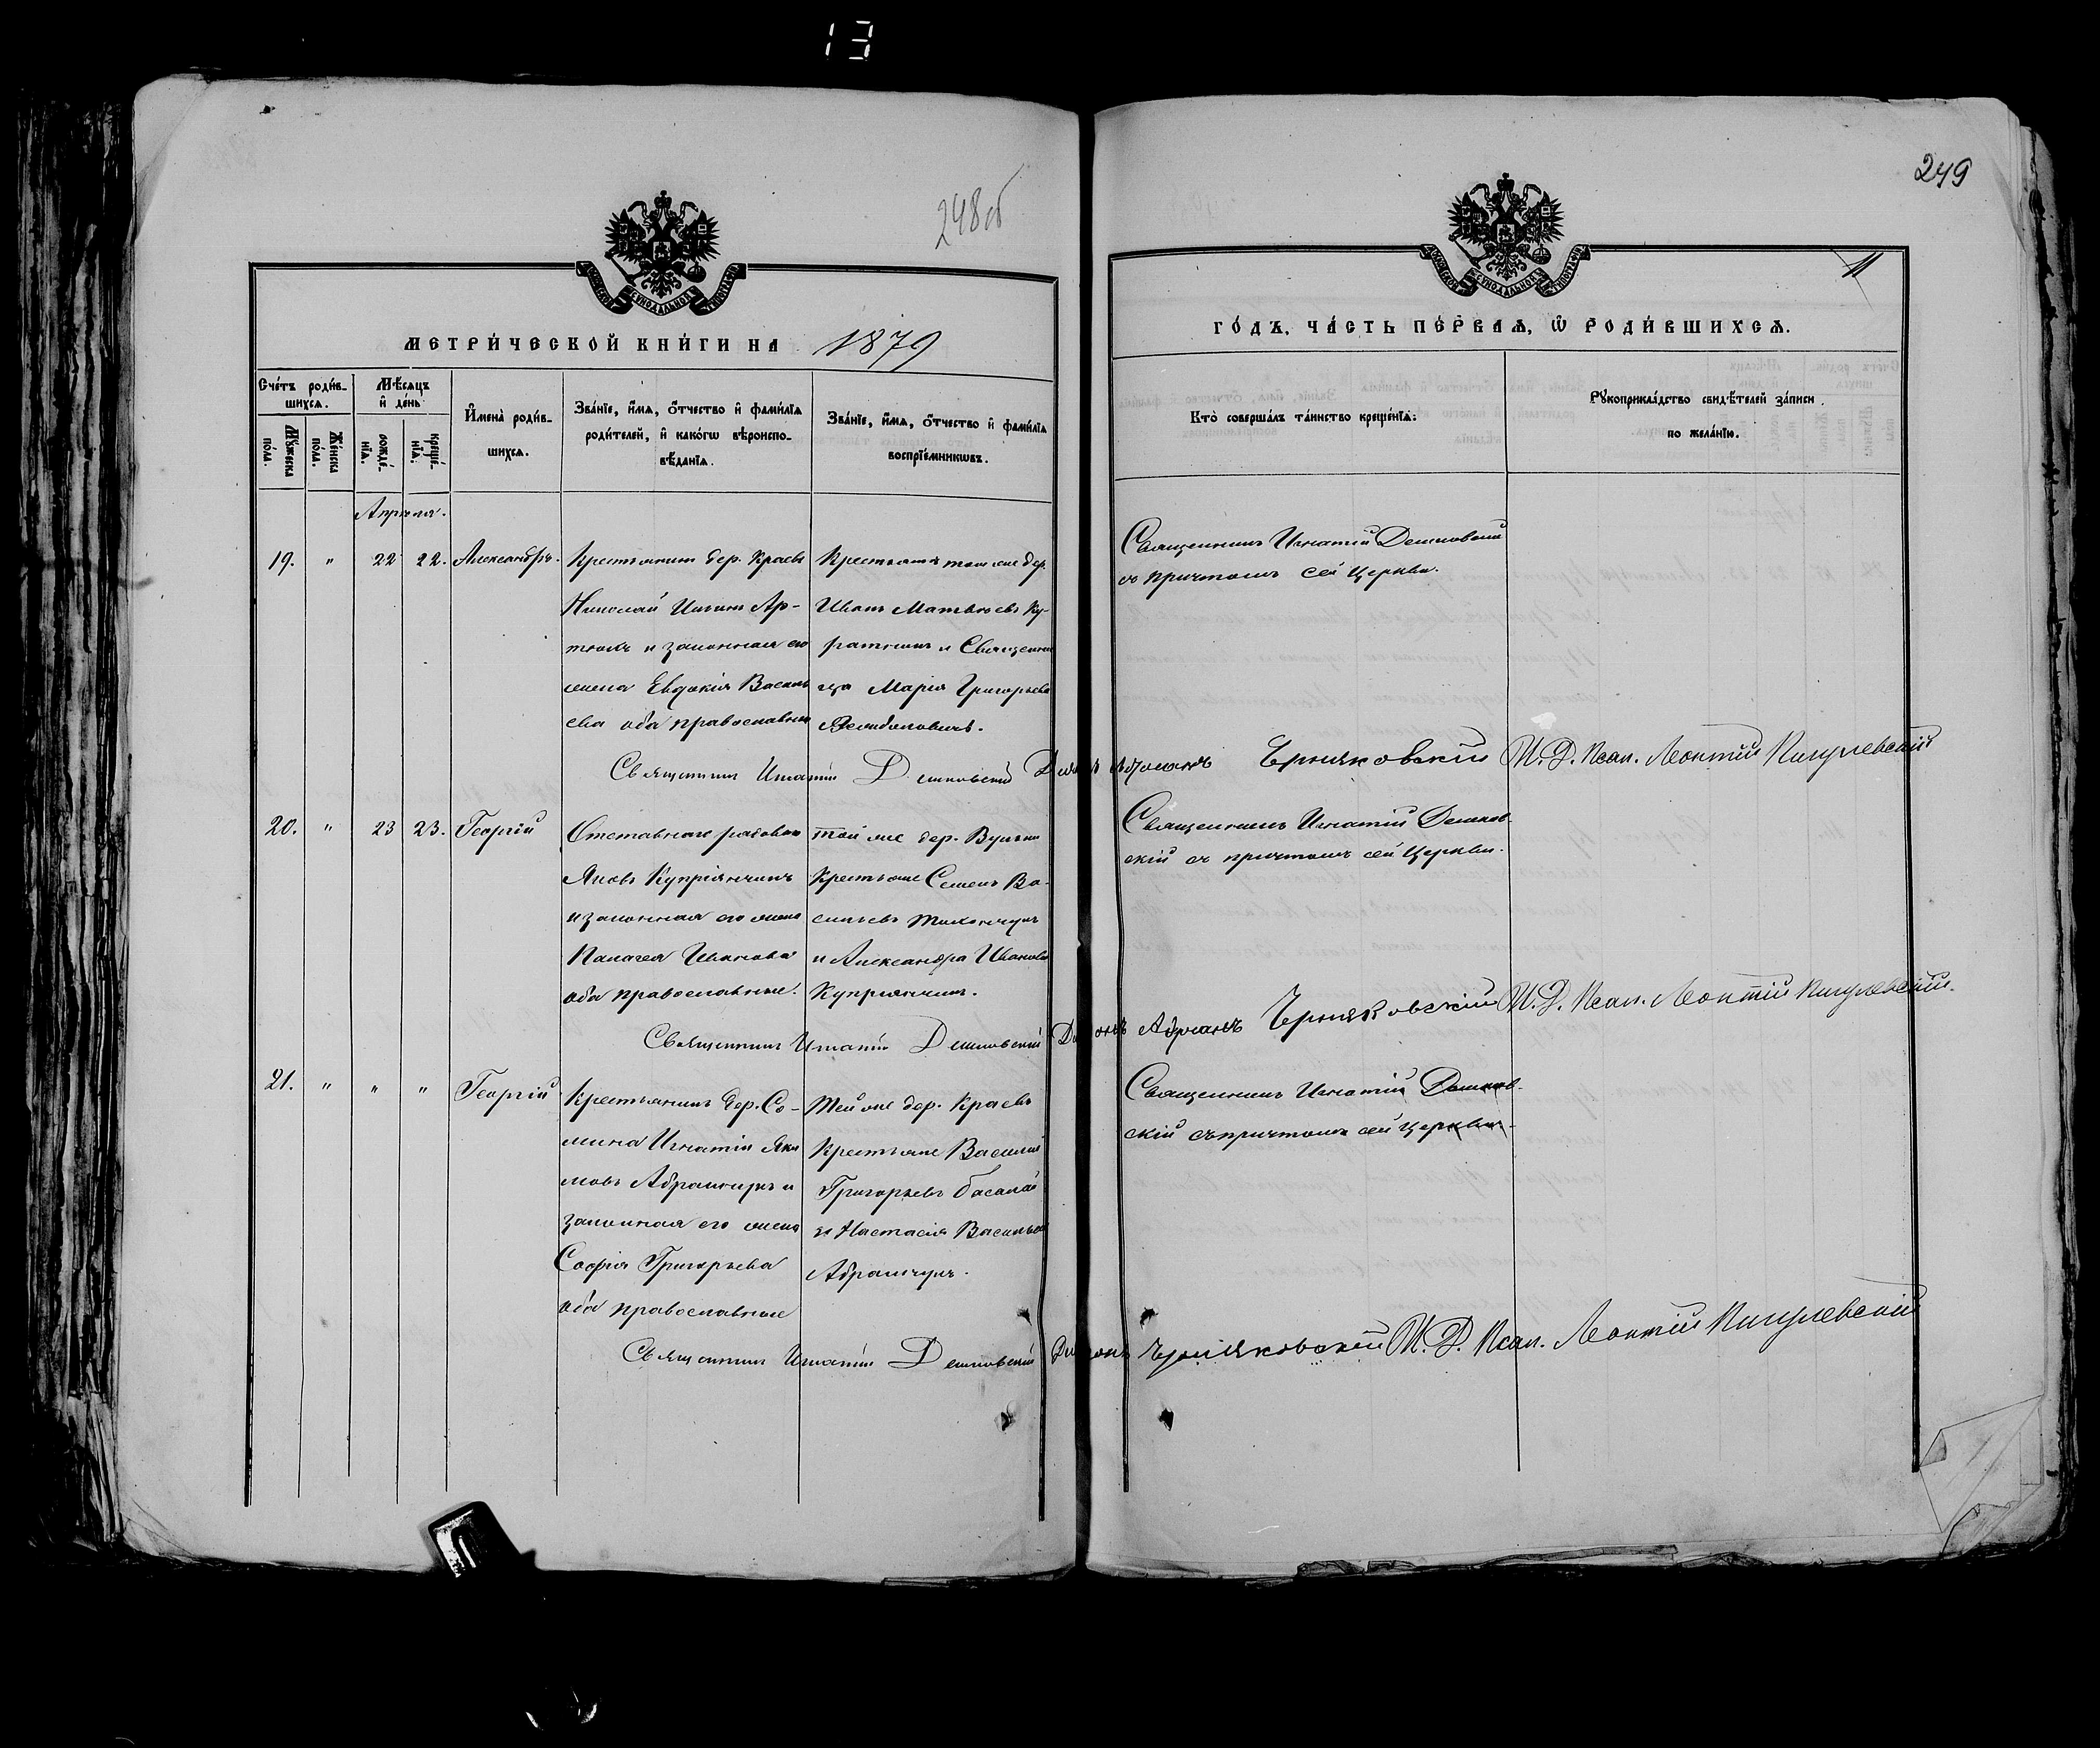 13
248об
249
11
МЕТРИ́ЧЕСКОЙ КНИ́ГИ НА 1879
ГО́ДЪ, ЧА́СТЬ ПЕ́РВАЯ, Ѡ РОДИ́ВШИХСЯ.
Сче́тъ роди́в-
шихся.
Мꙋ́жеска по́ла.
Же́нска по́ла.
Мѣ́сяцъ
и҆ де́нь
рожде́-
нїѧ.
креще́-
нїѧ.
И҆мена̀ роди́в-
шихсѧ.
Зва́нїе, и҆́мѧ, ѻ҆́тчество и҆ фами́лїѧ
роди́телей, и҆ како́гѡ вѣроиспо-
вѣ́данїѧ.
Зва́нїе, и҆́мѧ, ѻ҆́тчество и҆ фами́лїѧ
воспрїе́мникѡвъ.
Кто̀ соверша́лъ та́инство креще́нїѧ:
Рꙋкоприкла́дство свидѣ́телей за́писи
по жела́нїю.
Апрѣля.
19. " 22 22. Александръ.
Крестьянинъ дер. Краевъ
Николай Ильинъ Ар-
тюхъ и законная его
жена Евдокія Василь
ева оба православные
Крестьяни тои же дер.
Иванъ Матвѣевъ Ку-
ратникъ и Священни
ца Марія Григорьева
Священникъ Игнатій Дешковскій
съ причтомъ сей Церкви.
Священникъ Игнатій Дешковскій Діаконъ Адріанъ Черняковскій И. Д. Псал. Леонтій Пигулевскій
20. " 23 23. Георгій
Отставного рядового
Яковъ Купріянчикъ
и законная его жена
Палагея Иванова
оба православные.
той же дер. Вульки
Крестьяне Семенъ Ва-
сильевъ Тихончукъ
и Александра Иванова
Купріянчикъ.
Священникъ Игнатій Дешков-
скій съ причтомъ сей Церкви.
Священникъ Игнатій Дешковскій Діаконъ Адріанъ Черняковскій И. Д. Псал. Леонтій Пигулевскій.
21. " " " Георгій
Крестьянинъ дер. Со-
мина Игнатій Яки
мовъ Абрамчукъ и
законная его жена
Софія Григорьева
оба православные
Тей же дер. Краевъ
Крестьяне Василій
Григорьевъ Басалай
и Настасія Васильева
Абрамчукъ.
Священникъ Игнатій Дешков-
скій съ причтомъ сей Церкви.
Священникъ Игнатій Дешковскій Діаконъ Черняковскій И. Д. Псал. Леонтій Пигулевскій